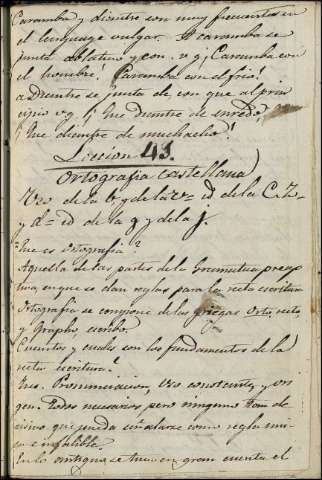 Caramba y diantre son muy frecuentes en
el lenguage vulgar. A caramba se
junta ablativo y con. v g ¡Caramba con
el hombre! Caramba con el frio!
a Diantre se junta de, con que al prin
cipio v g ¡ Que diantre de enredo!
¡ Que diantre de muchacho!
Liccion 43.
Ortografia castellana
Uso de la b y de la v= id de la C. Z
y d= id de la g y de la j.
Que es ortografia?
Aquella de las partes de la Gramatica
en que se dan reglas para la recta escritura
Ortografia se compone de las griegas Orto, recto,
y Grapho, escribo
Cuantos y cuales son los fundamentos de la
recta escritura?
Tres. Pronunciacion, Uso constante, y ori
gen. Todos necesarios pero ninguno tan de
cisivo que pueda señalarse como regla uni
ca e infalible.
En lo antiguo se tuvo en gran cuenta el